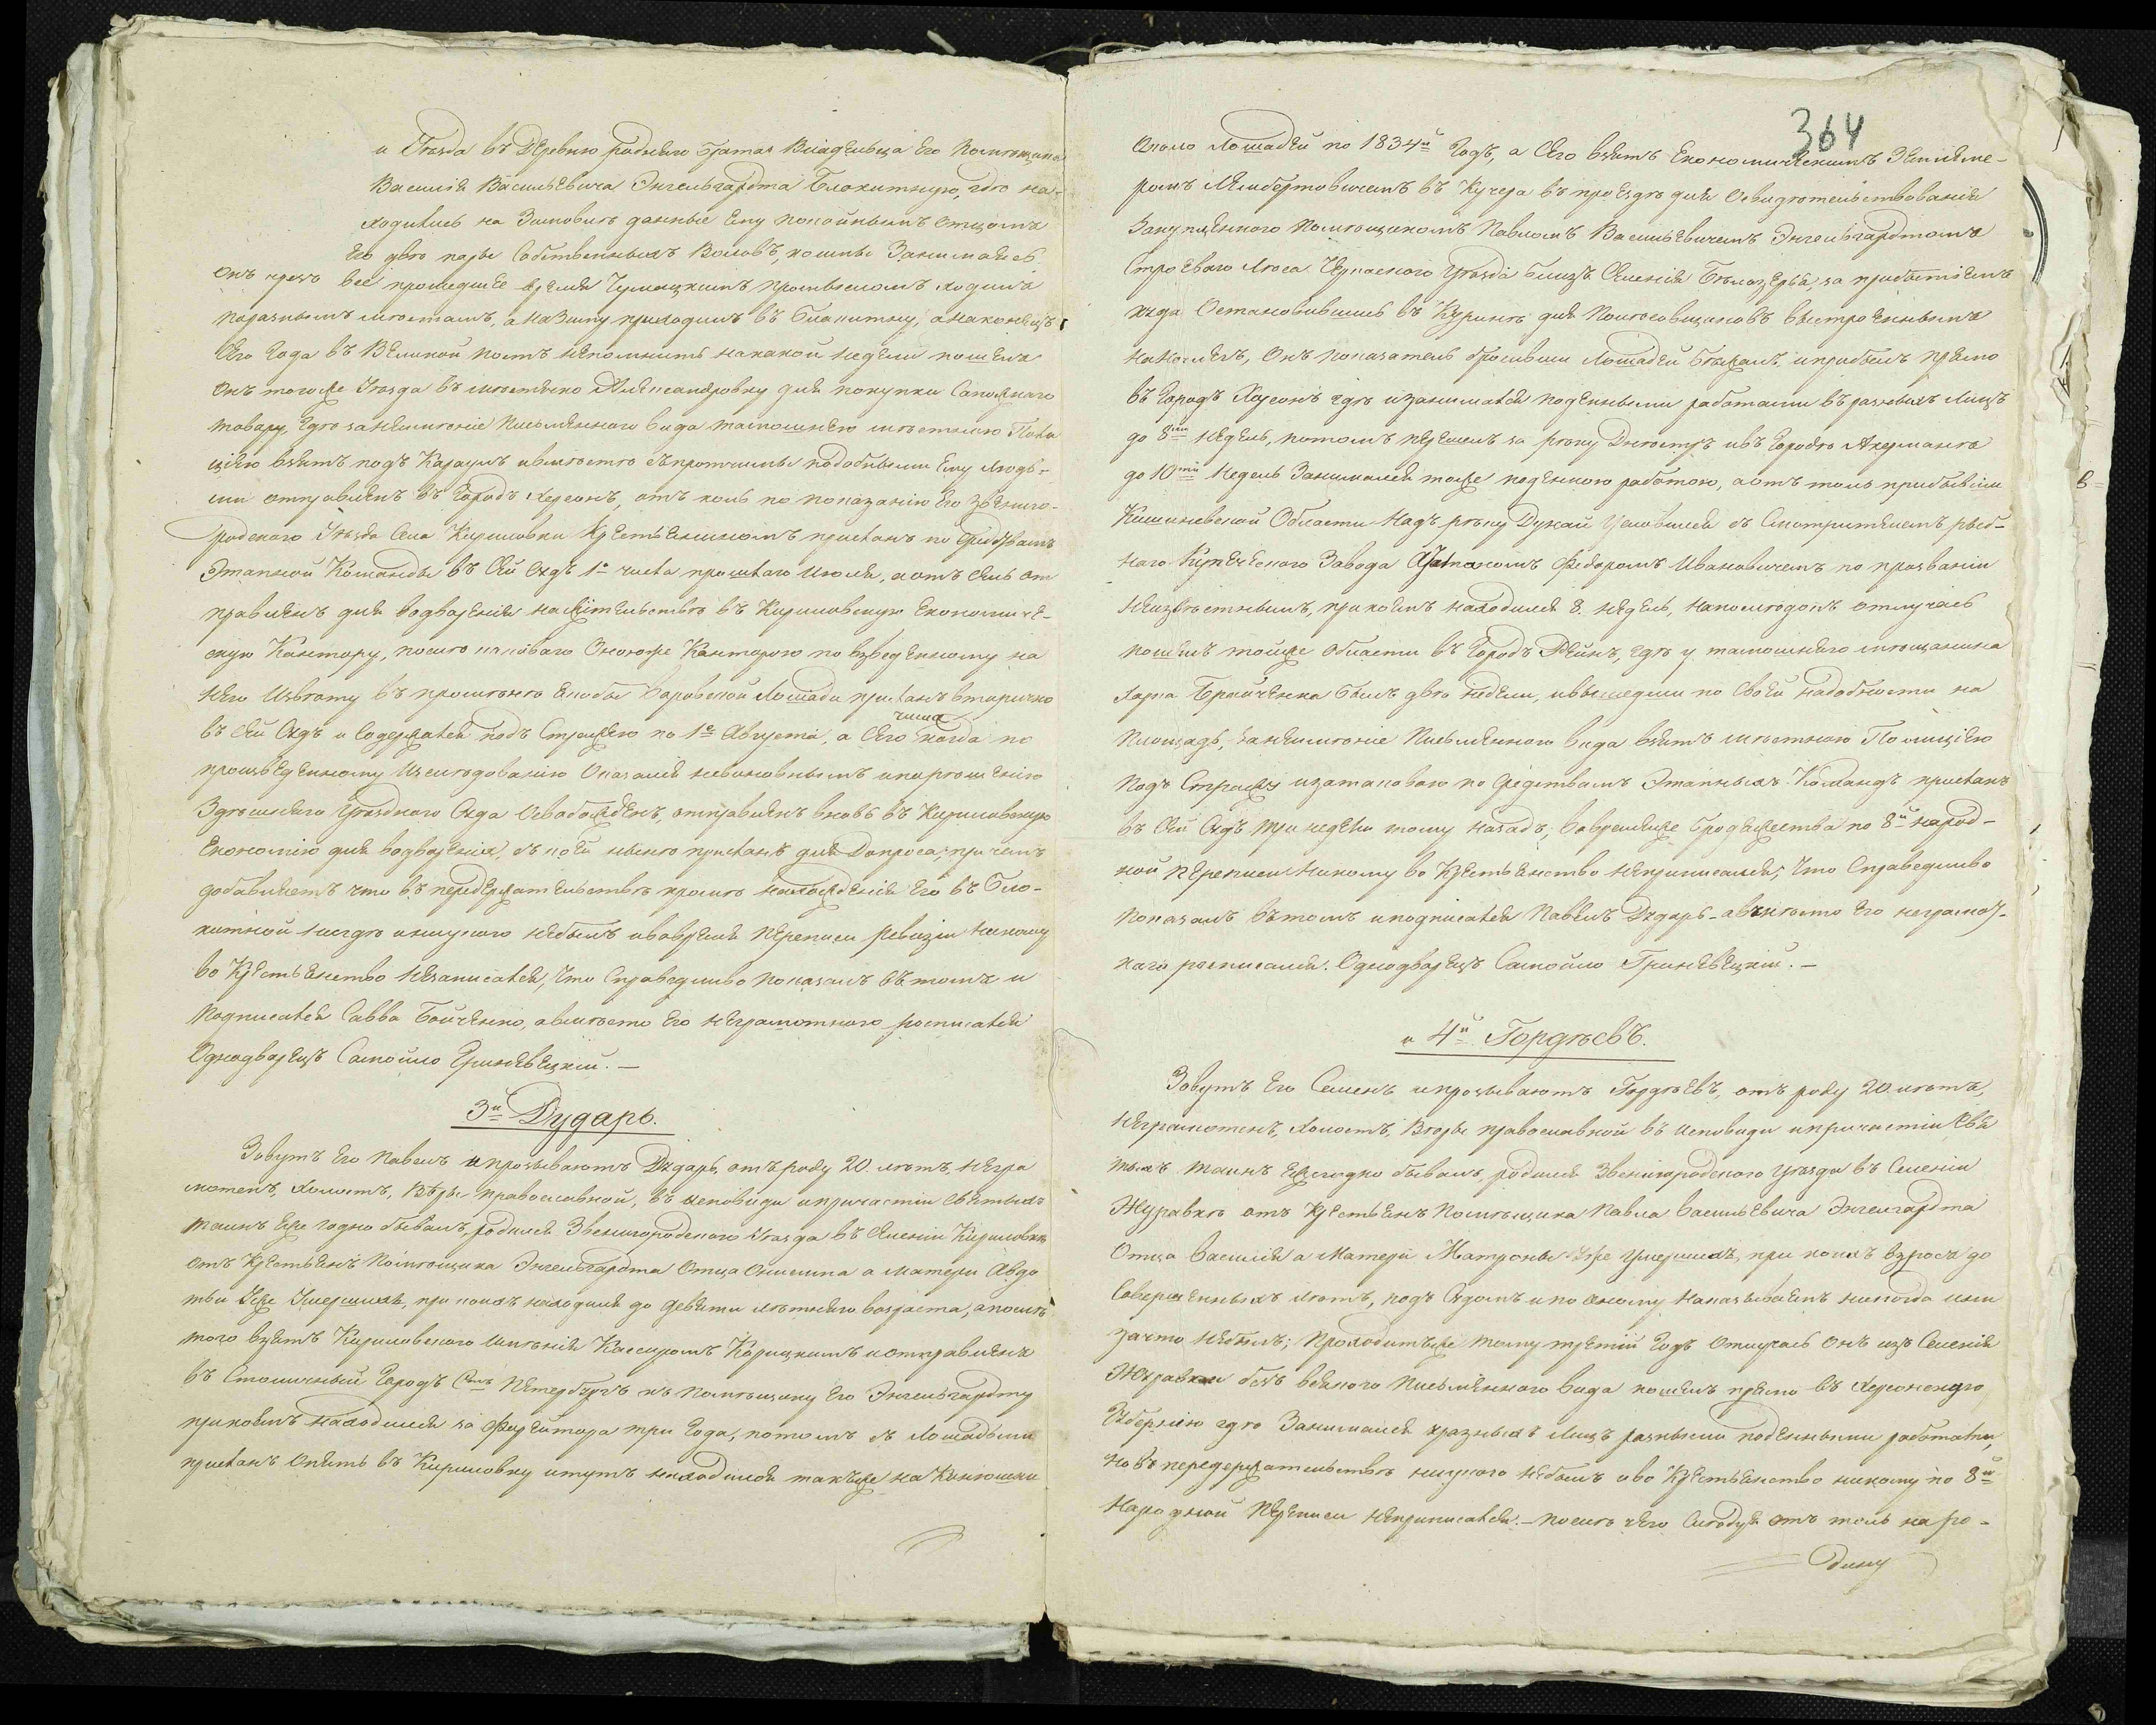 и Уѣзда въ Деревню роднаго братая Владельца Его Помѣщика
Василія Васильевича Энгельгардта Блокитную, гдѣ на-
ходились на Зимовлѣ данные Ему покойнымъ отцомъ
Его двѣ пары Собственныхъ Воловъ, коими Занимаясь
онъ чрезъ всё прошедшее время Чумацкимъ промысломъ ходилъ
поразнымъ мѣстамъ, а на Зиму приходилъ въ Блакитну, а наконецъ
сего Года въ Великой постъ непомнитъ накакой недели пошелъ
онъ тогоже Уѣзда въ мѣстечко Александровку для покупки Сапожнаго
товару, гдѣ за неимѣніе Письменнаго вида тамошнею мѣстною Поли
ціею взятъ подъ Караулъ и вмѣстѣ съ протчими подобными Ему людь-
ми отправленъ въ Городъ Херсонъ, отъ коль по показанію Его Звениго-
родскаго Уѣзда Села Кириловки Крестьяниномъ присланъ по средствамъ
Этапной Команды въ Сей Судъ 1го числа прошлаго Июля, и отъ сель от
правленъ для водворенія на жительство въ Кириловскую Економиче-
скую Кантору, послѣ каковаго Оноюже Канторою по взведенному на
него Извѣту въ проигрышѣ якобы воровской лошади присланъ вторично
въ сей Судъ и Содержался подъ Стражею по 1е числа Августа, а Сего когда по
произведенному Изслѣдованію Оказался невиновнымъ и по решенію
Здѣшняго Уѣзднаго Суда Освобожденъ, отправленъ вновь въ Кириловскую
Економію для водворенія, съ коей нынѣ присланъ для Допроса; при чемъ
добавляетъ что въ передержательствѣ кромѣ нахожденія Его въ Бло-
китной нигдѣ и ни укого небылъ и вовремя Переписи Ревизіи никому
во Крестьянство незаписался, Что Справедливо показалъ въ томъ и
Подписался Савва Бойченко, а вмѣсто Его неграмотнаго росписался
Однодворецъ Самойло Гриневецкій. —
3й Дударь.
Зовутъ Его Павелъ и прозываютъ Дударь, отъ роду 20 лѣтъ, негра
мотенъ, холостъ, Вѣры православной, въ исповѣди и причастіи святыхъ
таинъ Еже годно бывалъ, родился Звенигородскаго Уѣзда въ Селеніи Кириловки
отъ Крестьянъ Помѣщика Энгельгардта Отца Онисима а матери Авдо
тьи Уже Умершихъ, при коихъ находился до девяти лѣтняго возраста, а послѣ
того взятъ Кириловскаго Имѣнія Кассиромъ Корицкимъ и отправленъ
въ Столичный Городъ Санктъ Петербургъ къ помѣщику Его Энгельгардту
при коемъ находился за Форейтора три Года, потомъ съ Лошадьми
присланъ опять въ Кириловку и тутъ находился также на Конюшни
364
Около Лошадей по 1834й Годъ, а Сего взятъ Економическимъ Землеме-
ромъ Лямбертовичемъ въ Кучера въ проездъ для Освидѣтельствованія
Закупленного помѣщикомъ Павломъ Васильевичемъ Энгельгардтомъ
Строеваго Лѣса Черкаскаго Уѣзда близъ Селенія Бѣлозерья, за прибытіемъ
куда Остановившись въ Курингѣ для Полѣсовщиковъ выстроенномъ
на ночлегъ, Онъ показатель бросивши Лошадей бѣжалъ, и прибылъ прямо
въ Городъ Херсонъ гдѣ и занимался поденными работами въ разныхъ лицъ
до 8ми недель, потомъ перешелъ за рѣку Днестръ и въ Городѣ Акерманѣ
до 10ти недель Занимался тоже поденною работою, а отъ толь прибывши
Кишиневской Области Надъ рѣку Дунай Условился съ Смотрителемъ рыб-
наго Купеческаго Завода Федоромъ Ивановичемъ по прозванію
неизвѣстнымъ, при коемъ находился 8. недель, наполѣдокъ отлучась
пошелъ тойже Области въ Городъ Рейнъ, гдѣ у тамошняго мѣщанина
Харка Бройченка былъ двѣ недели, и вышедши по своей надобности на
Площадь, за неимѣніе Письменнаго вида взятъ мѣстною Полиціею
подъ Стражу и затаковою по средствамъ Этапныхъ Командъ присланъ
въ Сей Судъ три недели тому назадъ; во времяже бродяжества по 8й народ-
ной Переписи никому во Крестьянство неприписался; Что Справедливо
Показалъ въ томъ и подписался Павелъ Дударь — а вмѣсто Его неграмот-
наго росписался. Однодворецъ Самойло Гриневецкій. —
и 4й Гордѣевъ.
Зовутъ Его Семенъ и прозываютъ Гордѣевъ, отъ роду 20 лѣтъ,
неграмотенъ, холостъ, Вѣры православной въ исповѣди и причастіи Свя
тыхъ таинъ Ежегодно бывалъ, родился Звенигородскаго Уѣзда въ Селеніи
Журавкѣ отъ Крестьянъ Помѣщика Павла Васильевича Энгельгардта
Отца Василія а Матери Матроны Уже Умершихъ, при коихъ взросъ до
Совершенныхъ лѣтъ, подъ Судомъ и по оному Наказываемъ никогда и ни
за что небылъ; Проходитъ уже тому третій Годъ отлучась онъ изъ Селенія
Журавки безъ всякого Письменнаго вида пошелъ прямо въ Херсонскую
Губернію гдѣ Занимался у разныхъ Лицъ разными поденными работами,
но въ передержательствѣ ни укого небылъ и во Крестьянство никому по 8й
Народной Переписи неприписался. — послѣ чего слѣдуя отъ толь на ро-
дину